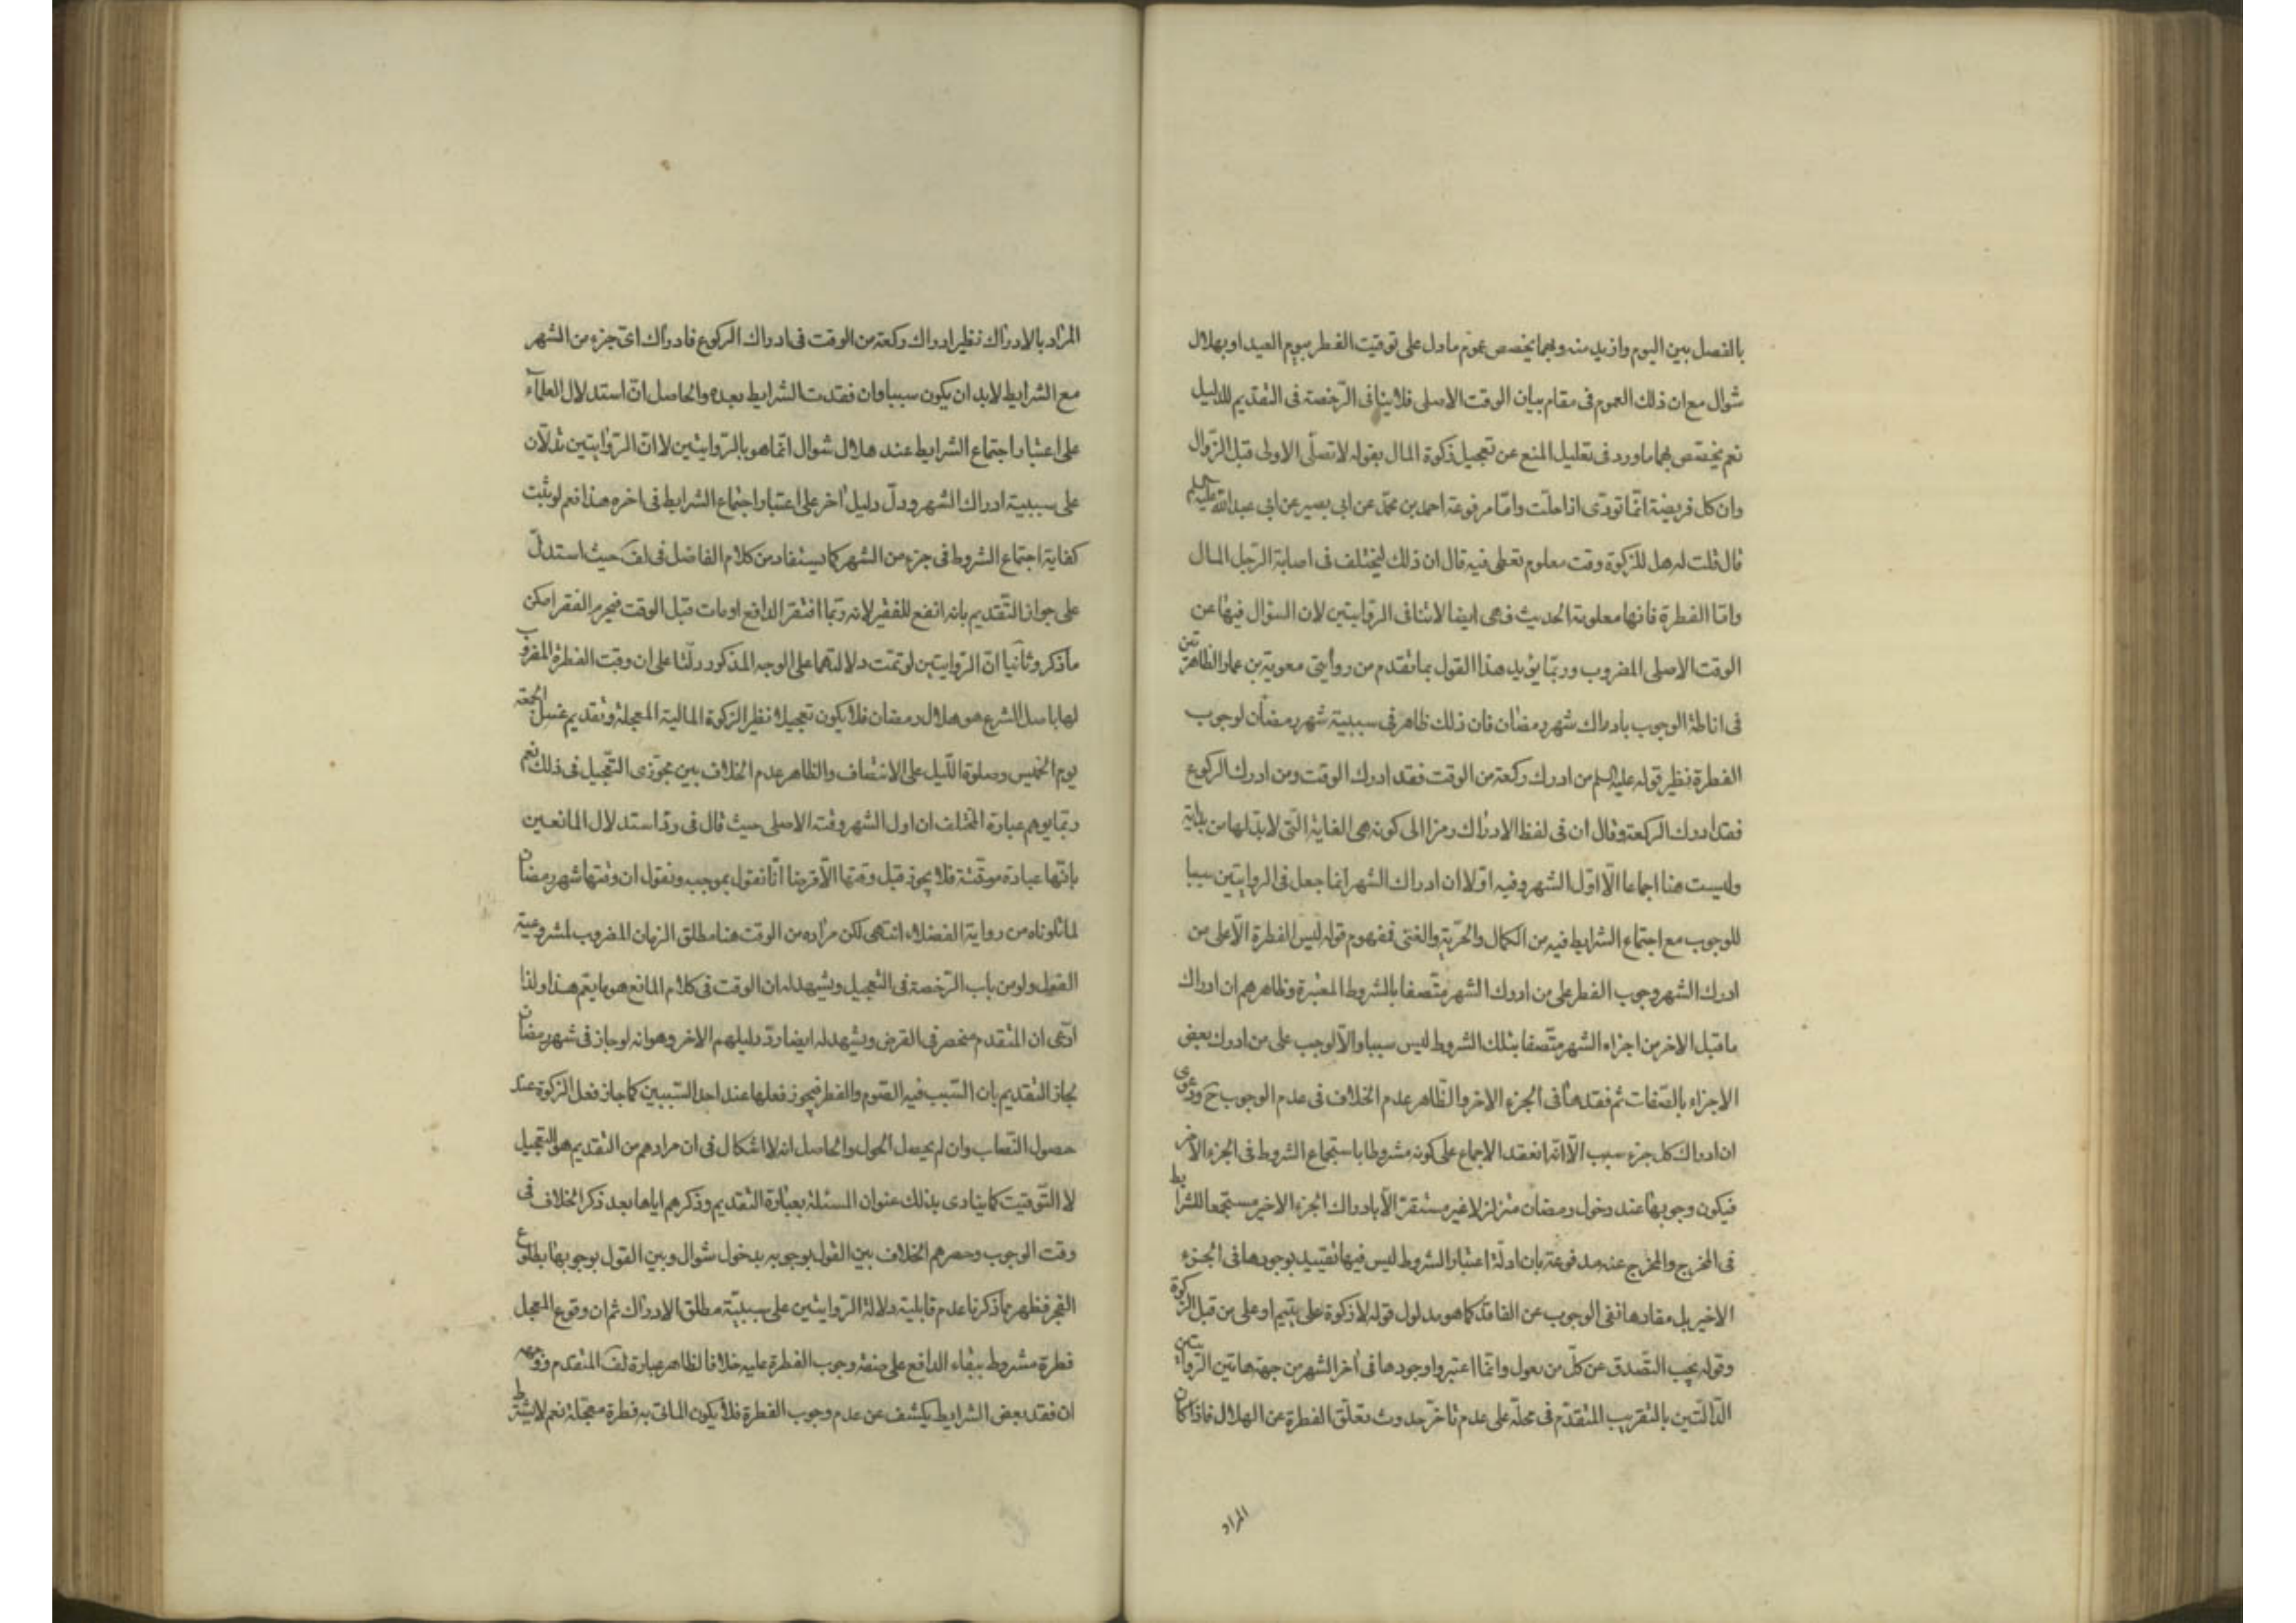 بالفصل بين اليوم وازيد منه وبهما يخصص عموم مادل على توقيت الفطر بيوم العيد او بهلال
شوال مع ان ذلك العموم فى مقام بيان الوقت الاصلى فلا ينافى الرّخصة فى التقديم للدليل
نعم يختص بهما ماورد فى تعليل المنع عن تعجيل زكوة المال بقوله لا تصلّى الاولى قبل الزّوال
وان كل فريضة انّما تودّى اذا حلّت وامّا مرفوعة احمد بن محمّد عن ابى بصير عن ابى عبد الله عليه السلم
قال قلت له هل للزكوة وقت معلوم تعطى فيه قال ان ذلك ليختلف فى اصابة الرّجل المال
وامّا الفطرة فانها معلومة الحديث فهى ايضا لا تنافى الروايتين لان السؤال فيها عن
الوقت الاصلى المضروب وربّما يؤيد هذا القول بما تقدم من روايتى معوية بن عمار الظاهرتين
فى اناطة الوجوب بادراك شهر رمضان فان ذلك ظاهر فى سببية شهر رمضان لوجوب
الفطرة نظير قوله عليه السلم من ادرك ركعة من الوقت فقد ادرك الوقت ومن ادرك الركوع
فقد ادرك الركعة وقال ان فى لفظ الادراك رمزا الى كونه هى الغاية الّتى لابدّ لها من بداية
وليست هنا اجماعا الّا اوّل الشهر وفيه اوّلا ان ادراك الشهر انما جعل فى الروايتين سببا
للوجوب مع اجتماع الشرايط فيه من الكمال والحرّية والغنى فمفهوم قوله ليس الفطرة الّا على من
ادرك الشهر وجوب الفطر على من ادرك الشهر متّصفا بالشروط المعتبرة وظاهرهم ان ادراك
ما قبل الاخر من اجزاء الشهر متّصفا بتلك الشروط ليس سببا والّا لوجب على من ادرك بعض
الاجزاء بالصّفات ثم فقدها فى الجزء الاخر والظّاهر عدم الخلاف فى عدم الوجوب ح ودعوى
ان ادراك كل جزء سبب الّا انّه انعقد الاجماع على كونه مشروطا باستجماع الشروط فى الجزء الاخر
فيكون وجوبها عند دخول رمضان متزلزلا غير مستقرّ الّا بادراك الجزء الاخير مستجمعا للشرايط
فى المخرج والمخرج عنه مدفوعة بان ادلّة اعتبار الشروط ليس فيها تقييد بوجودها فى الجزء
الاخير بل مفادها نفى الوجوب عن الفاقد كما هو مدلول قوله لا زكوة على يتيم او على من قبل الزكوة
وقوله يجب التّصدق عن كلّ من يعول وانّما اعتبروا وجودها فى اخر الشهر من جهة هاتين الروايتين
الدّالّتين بالتقريب المتقدّم فى محلّه على عدم تاخّر حدوث تعلّق الفطرة عن الهلال فاذا كان
المراد
المراد بالادراك نظير ادراك ركعة من الوقت فى ادراك الركوع فادراك اىّ جزء من الشهر
مع الشرايط لابد ان يكون سببا وان فقدت الشرايط بعده والحاصل انّ استدلال العلمآء
على اعتبار اجتماع الشرايط عند هلال شوال انّما هو بالرّوايتين لا انّ الرّوايتين تدلّان
على سببية ادراك الشهر ودلّ دليل اخر على اعتبار اجتماع الشرايط فى اخره هذا نعم لو ثبت
كفاية اجتماع الشروط فى جزء من الشهر كما يستفاد من كلام الفاضل فى لف حيث استدلّ
على جواز التّقديم بانه انفع للفقير لانه ربّما افتقر الدافع او مات قبل الوقت فيحرم الفقر امكن
ما ذكر وثانيا انّ الرّوايتين لو تمّت دلالتهما على الوجه المذكور دلّتا على ان وقت الفطرة المضروب
لها باصل الشرع هو هلال رمضان فلا يكون تعجيلا نظير الزكوة المالية المعجلة وتقديم غسل الجمعة
يوم الخميس وصلوة اللّيل على الانتصاف والظاهر عدم الخلاف بين مجوّزى التّعجيل فى ذلك نعم
ربّما يوهم عبارة المختلف ان اول الشهر وقته الاصلى حيث قال فى ردّ استدلال المانعين
بانّها عبادة موقّتة فلا يجوز قبل وقتها الّا قرضا انّا نقول بموجبه ونقول ان وقتها شهر رمضان
لما تلوناه من رواية الفضلاء انتهى لكن مراده من الوقت هنا مطلق الزمان المضروب لمشروعية
الفعل ولو من باب الرّخصة فى التّعجيل ويشهد له ان الوقت فى كلام المانع هو ما يعمّ هذا ولذا
ادّعى ان المتقدم منحصر فى القرض ويشهد له ايضا ردّ دليلهم الاخر وهو انه لو جاز فى شهر رمضان
لجاز التقديم بان السّبب فيه الصّوم والفطر فيجوز فعلها عند احد السّببين كما جاز فعل الزكوة عند
حصول النّصاب وان لم يحصل الحول والحاصل انه لا اشكال فى ان مرادهم من التقديم هو التعجيل
لا التّوقيت كما ينادى بذلك عنوان المسئلة بعبارة التقديم وذكرهم اياها بعد ذكر الخلاف فى
وقت الوجوب وحصرهم الخلاف بين القول بوجوبه بدخول شوال وبين القول بوجوبها بطلوع
الفجر فظهر مما ذكرنا عدم قابلية دلالة الرّوايتين على سببيّة مطلق الادراك ثم ان وقوع المعجل
فطرة مشروط ببقاء الدافع على صفة وجوب الفطرة عليه خلافا لظاهر عبارة لف المتقدم
ان فقد بعض الشرايط يكشف عن عدم وجوب الفطرة فلا يكون الماتى به فطرة معجّلة نعم لا يشترط